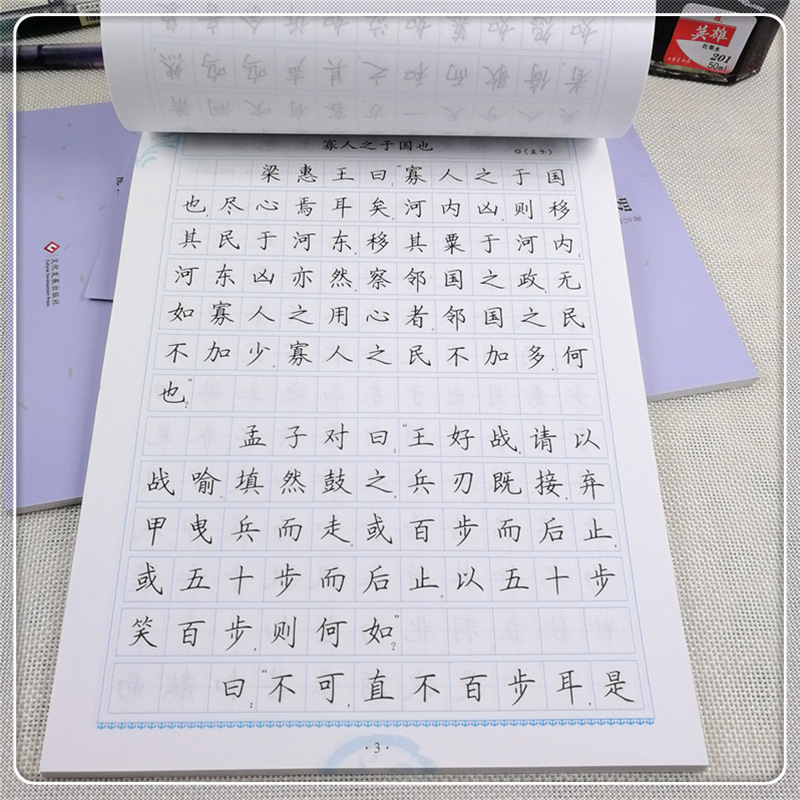 寡人之于国也
○《孟子》
梁惠王曰:“寡人之于国
也,尽心焉耳矣。河内凶,则移
其民于河东,移其粟于河内;
河东凶亦然。察邻国之政,无
如寡人之用心者。邻国之民
不加少,寡人之民不加多,何
也?”
孟子对曰:“王好战,请以
战喻。填然鼓之,兵刃既接,弃
甲曳兵而走。或百步而后止,
或五十步而后止。以五十步
笑百步,则何如?”
曰:“不可,直不百步耳,是
·3·
文化发展出版社
Cultural Development Press
英雄
红墨水
201
50ml